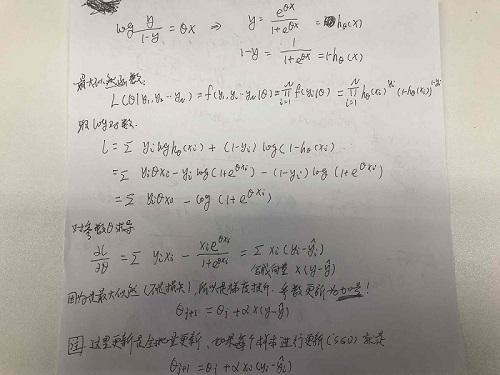 log y/(1-y) = θx ⇒ y = e^{θx}/(1+e^{θx}) = h_θ(x)
1-y = 1/(1+e^{θx}) = 1-h_θ(x)
最大似然函数:
L(θ|y₁,y₂…y_N) = f(y₁,y₂…y_N|θ) = ∏_{i=1}^{N} f(y_i|θ) = ∏_{i=1}^{N} h_θ(x_i)^{y_i} (1-h_θ(x_i))^{1-y_i}
取log对数.
l = Σ y_i log h_θ(x_i) + (1-y_i) log(1-h_θ(x_i))
= Σ y_iθx_i - y_i log(1+e^{θx_i}) - (1-y_i) log(1+e^{θx_i})
= Σ y_iθx_i - log(1+e^{θx_i})
对参数θ求导
∂l/∂θ = Σ y_i x_i - x_i e^{θx_i}/(1+e^{θx_i}) = Σ x_i (y_i-ŷ_i)
向量 x(y-ŷ)
因为是最大似然(不是损失), 所以是梯度上升. 参数更新为加号!
θ_{j+1} = θ_j + αx(y-ŷ)
注 这里更新是全批量更新, 如果每个样本进行更新(SGD)就是
θ_{j+1} = θ_j + αx_i(y_i-ŷ_i)